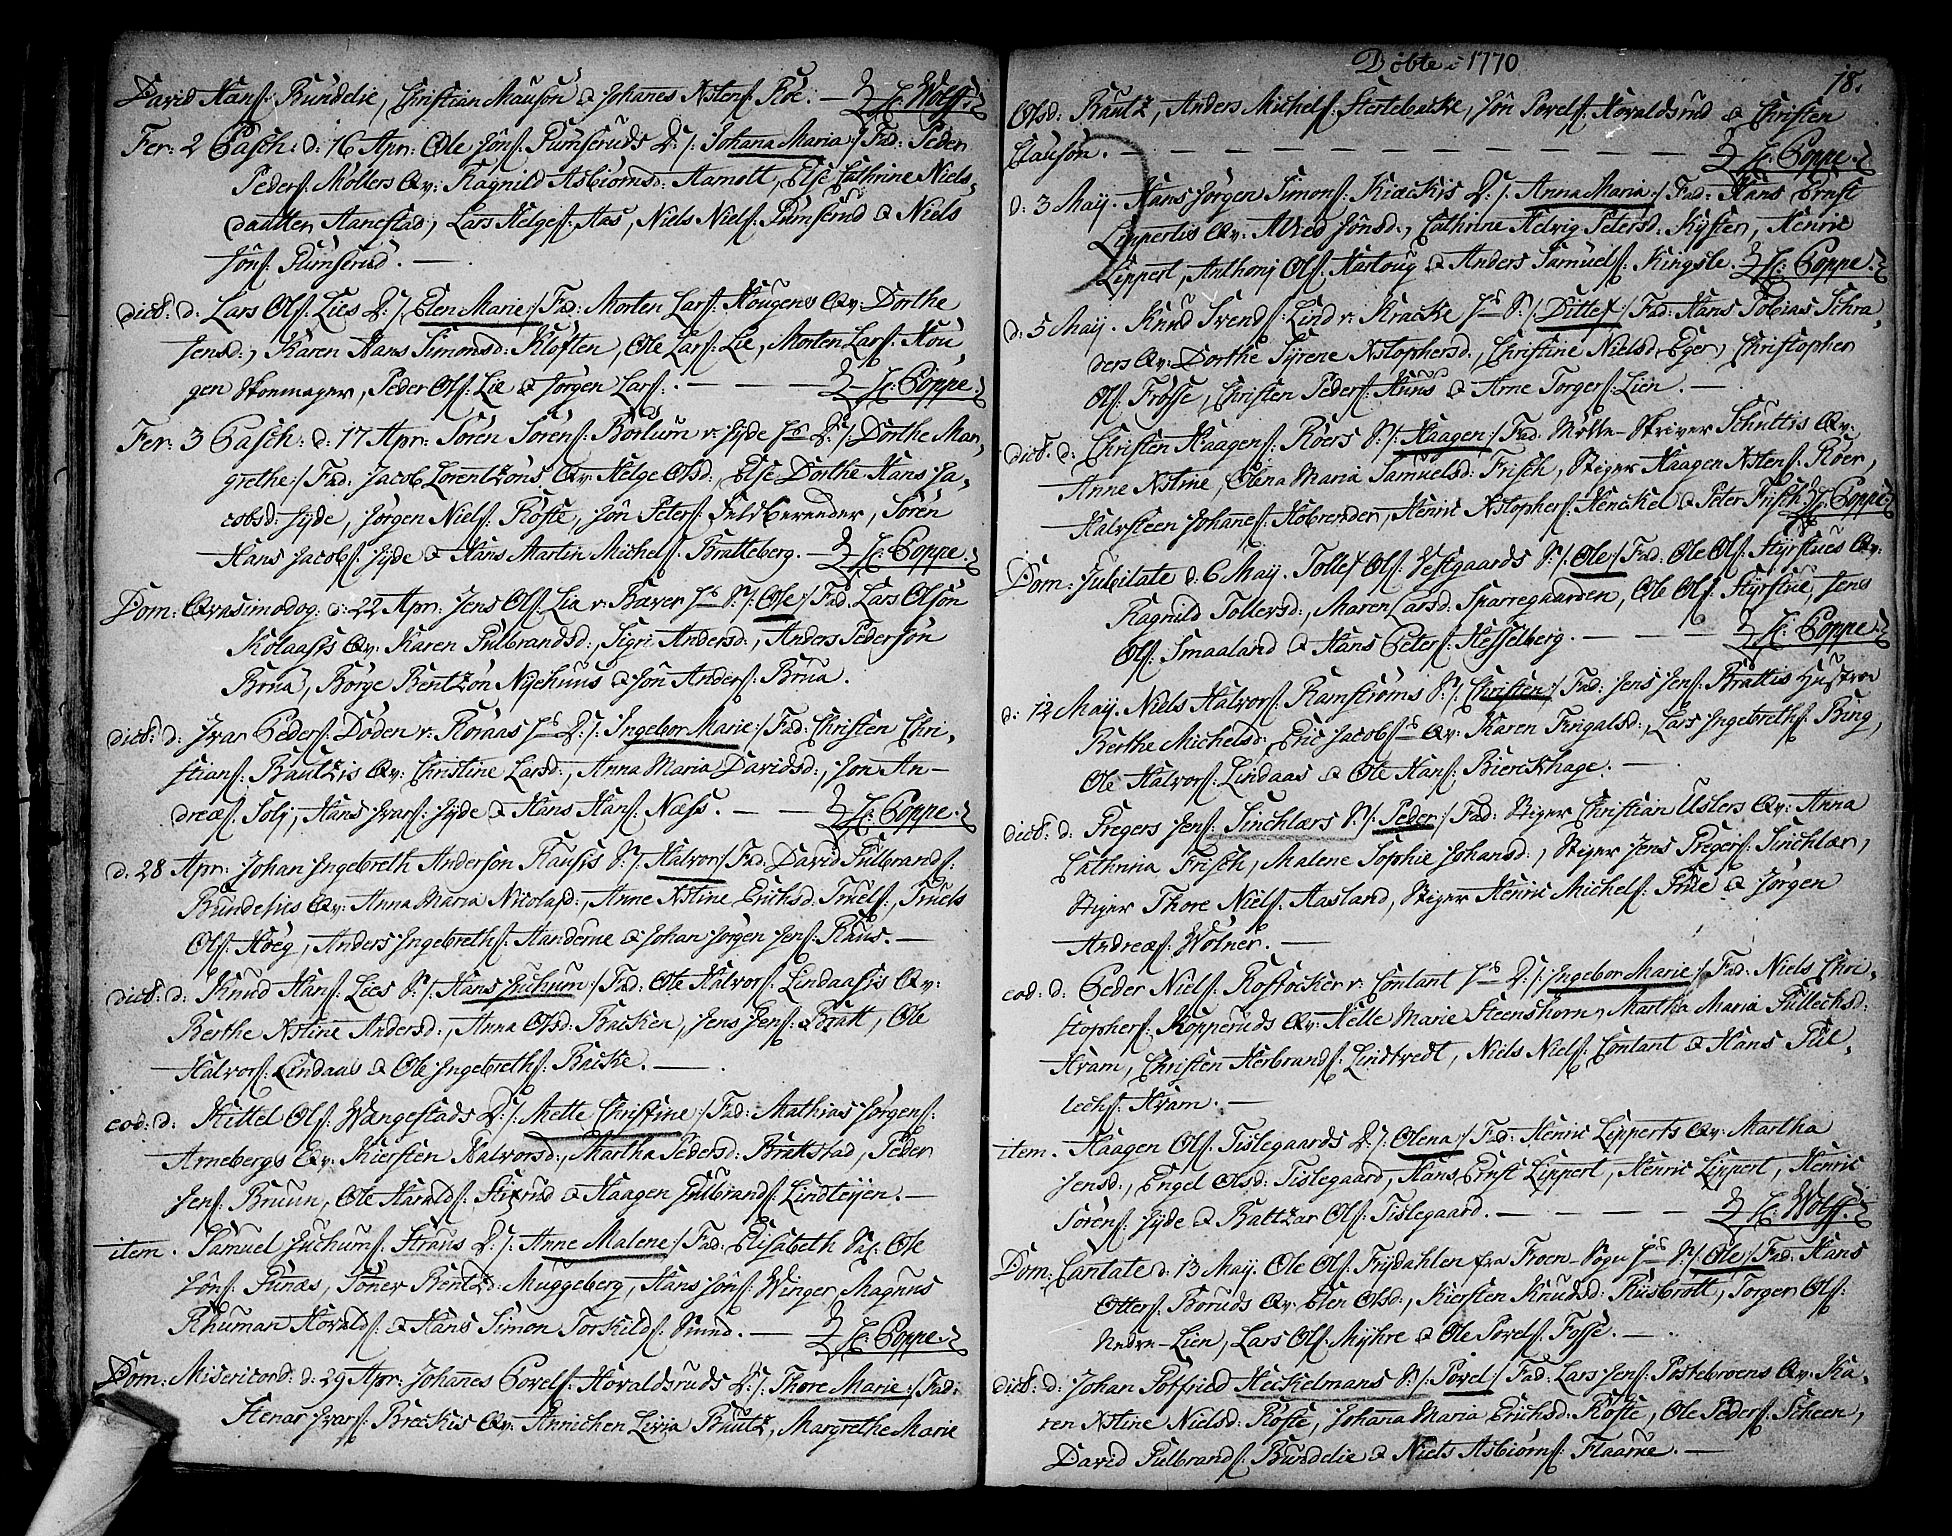 David Hans: Bundelie, Christian Mauson & Johanes Nstens: Roe. — H: Wolff.
Fer: 2 Pasch: d: 16 Apr: Ole Jöns: Rumseruds D: /: Johana Maria :/ Fad: Peder
Peders: Möllers Qv: Ragnild Asbiörnsd: Aamott, Else Cathrine Niels-
daatter Aanestad, Lars Helges: Aas, Niels Niels: Rumserud & Niels
Jöns: Rumserud. —
dict: d: Lars Ols: Lies D: /: Elen Marie :/ Fad: Morten Lars: Hougens Qv: Dorthe
Jensd:, Karen Hans Simonsd: Kloften, Ole Lars: Lie, Morten Lars: Hou-
gen Skomager, Peder Ols: Lie & Jörgen Lars: — — — H: Poppe.
Fer: 3 Pasch: d: 17 Apr: Sören Sörens: Borlum v: Hyde D: /: Dorthe Mar-
grethe :/ Fad: Jacob Lorentzons Qv: Helge Olsd:, Else Dorthe Hans Ja-
cobsd: Hyde, Jörgen Niels: Roste, Jön Peters: Guldbrender, Sören
Hans Jacobs: Hyde & Hans Martin Michels: Bratteberg. — H: Poppe.
Dom: Qvasimodog: d: 22 Apr: Jens Ols: Lia v: Bæver S: /: Ole :/ Fad: Lars Olsön
Kolaases Qv: Karen Gulbrandsd:, Sigri Andersd:, Anders Pedersön
Brua, Börge Bentzon Nyehuus & Jön Anders: Brua.
dict: d: Ivar Peders: Döden v: Roraas D: /: Ingebor Marie :/ Fad: Christen Chri-
stians: Bautzis Qv: Christine Larsd:, Anna Maria Davidsd:, Jon An-
dreæs: Solj, Hans Ivars: Hyde & Hans Hans: Næss. — — H: Poppe.
d: 28 Apr: Johan Ingebreth Anderson Rausis S: /: Halvor :/ Fad: David Gulbrands:
Bundelies Qv: Anna Maria Nicolasd:, Anne Nstine Erichsd: Truels:, Truels
Ols: Hoeg, Anders Ingebreths: Aanderne & Johan Jörgen Jens: Raus. —
dict: d: Knud Hans: Lies S: /: Hans Juchum :/ Fad: Ole Halvors: Lindaasis Qv:
Berthe Nstine Andersd:, Anna Olsd: Backen, Jens Jens: Bratt, Ole
Halvors: Lindaas & Ole Ingebreths: Backe. —
eod: d: Kittel Ols: Wangestads D: /: Mette Christine :/ Fad: Mathias Jörgens:
Arnebergs Qv: Kiersten Halvorsd:, Martha Pedersd: Brattstad, Peder
Jens: Bruun, Ole Haralds: Stixrud & Haagen Gulbrands: Lindteyen. —
item. Samuel Juchums: Straus D: /: Anne Malene :/ Fad: Elisabeth Sal: Ole
Jöns: Funæs, Toner Bentzd: Muggeberg, Hans Jöns: Winger, Magnus
Rhuman Horalds: & Hans Simon Torkilds: Sund. — H: Poppe.
Dom: Misericord: d: 29 Apr: Johanes Povels: Horaldsruds D: /: Thore Marie :/ Fad:
Stenar Ivars: Breckis Qv: Annichen Livia Bautz, Margrethe Marie
Döbte i 1770
18.
Olsd: Bautz, Anders Michels: Stertebacke, Jön Povels: Horaldsrud & Christen
Clausön. — — — — — — — — — H: Poppe.
d: 3 May. Hans Jörgen Simons: Kiækis D: /: Anna Maria :/ Fad: Hans Ernst
Lippertis Qv: Alhed Jönsd:, Cathrine Helvig Petersd: Kysten, Henric
Lippert, Anthonj Ols: Hartoug & Anders Samuels: Kingsle. H: Poppe.
d: 5 May. Knud Svends: Lind v: Kracke S: /: Ditlef :/ Fad: Hans Tobias Schra-
ders Qv: Dorthe Syrene Nstophersd:, Christine Nielsd: Eger, Christopher
Ols: Frösse, Christen Peders: Huus & Arne Torgers: Lien. —
dict: d: Christen Haagens: Röers S: /: Haagen :/ Fad: Mölle-Skriver Schuttis Qv:
Anne Nstine, Olena Maria Samuelsd: Frisch, Stiger Haagen Nstens: Röer,
Halvsteen Johanes: Kobrenden, Henric Nstophers: Henckel & Peter Frisch. H: Poppe.
Dom: Jubilate d: 6 May. Tollef Ols: Vestgaards S: /: Ole :/ Fad: Ole Ols: Styrstues Qv:
Ragnild Tollefsd:, Maren Larsd: Sparregaarden, Ole Ols: Styrstue, Jens
Ols: Smaaland & Hans Peters: Hesselberg. — — — H: Poppe.
d: 12 May. Niels Halvors: Ramströms S: /: Christen :/ Fad: Jens Jens: Brattis Hustroe
Berthe Michelsd:, Eric Jacobs: Qv: Karen Fingalsd:, Lars Ingebreths: Bing,
Ole Halvors: Lindaas & Ole Hans: Bierckhage. —
dict: d: Pregers Jens: Sinchlærs S: /: Peder :/ Fad: Stiger Christian Uslers Qv: Anna
Cathrina Frisch, Malene Sophie Johansd:, Stiger Jens Pregers: Sinchlær,
Stiger Thore Niels: Aasland, Stiger Henric Michels: Frue & Jörgen
Andreæs: Wölner. —
eod: d: Peder Niels: Rostocker v: Contant D: /: Ingebor Marie :/ Fad: Niels Chri-
stophers: Kopperuds Qv: Helle Marie Steenshorn, Martha Maria Gullechsd:
Hvam, Christen Herbrands: Lindtvedt, Niels Niels: Contant & Hans Gul-
lechs: Hvam. —
item. Haagen Ols: Tislegaards D: /: Olena :/ Fad: Henric Lipperts Qv: Martha
Jensd:, Engel Olsd: Tislegaard, Hans Ernst Lippert, Henric Lippert, Henric
Sörens: Hyde & Baltzar Ols: Tislegaard. — — — — H: Wolff.
Dom: Cantate d: 13 May. Ole Ols: Frydahlen fra Froen-Sogn S: /: Ole :/ Fad: Hans
Otters: Boruds Qv: Elen Olsd:, Kiersten Knudsd: Rusbrott, Torger Ols:
Nedre-Lien, Lars Ols: Myhre & Ole Povels: Fosse. —
dict: d: Johan Gotfried Heckelmans S: /: Povel :/ Fad: Lars Jens: Postebroens Qv: Ka-
ren Nstine Nielsd: Roste, Johana Maria Erichsd: Roste, Ole Peders: Scheen,
David Gulbrands: Bundelie & Niels Asbiörns: Flaarne. —